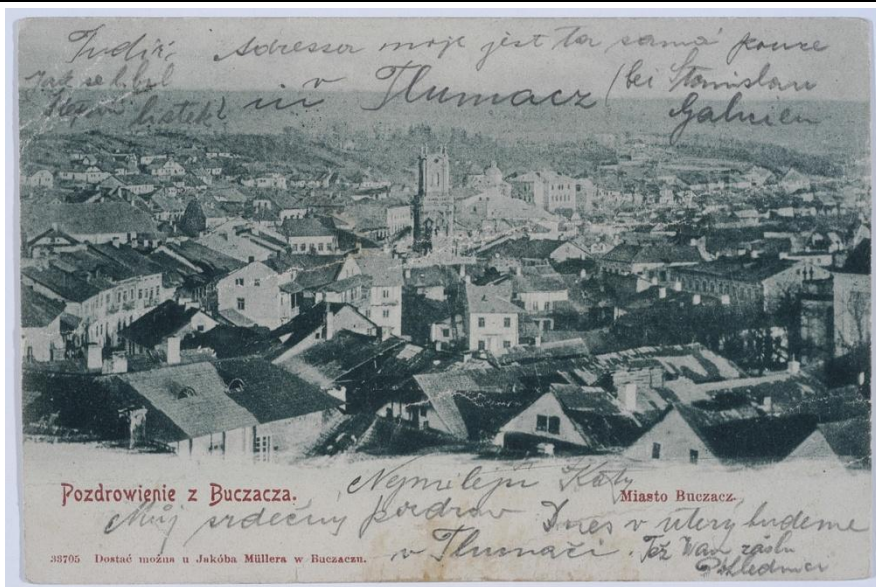 Adressa moje jest ta sama pouze
v
in Tlumacz (bei Stanislau
Galizien
lístek?
Pozdrowienie z Buczacza.
Miasto Buczacz.
Nejmilejší Katy
Můj srdečný pozdrav Dnes v úterý budeme
v Tlumači. Též Vám zašlu
Pohlednici
33705 Dostać można u Jakóba Müllera w Buczaczu.